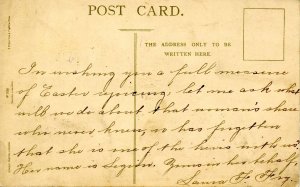 POST CARD.
THE ADDRESS ONLY TO BE
WRITTEN HERE.
In wishing you a full measure
of Easter rejoicing, let me ask what
will we do about that woman's share
who never knew, or has forgotten
that she is one of the heirs with us?
Her name is Legion. Yours in her behalf,
Laura F.